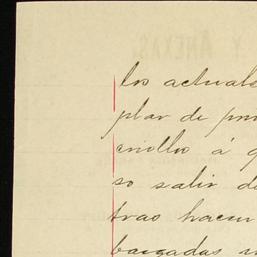 Y ANEXAS.
los actuale
plar de pro
á q
so salir de
tras hacen
bargadas